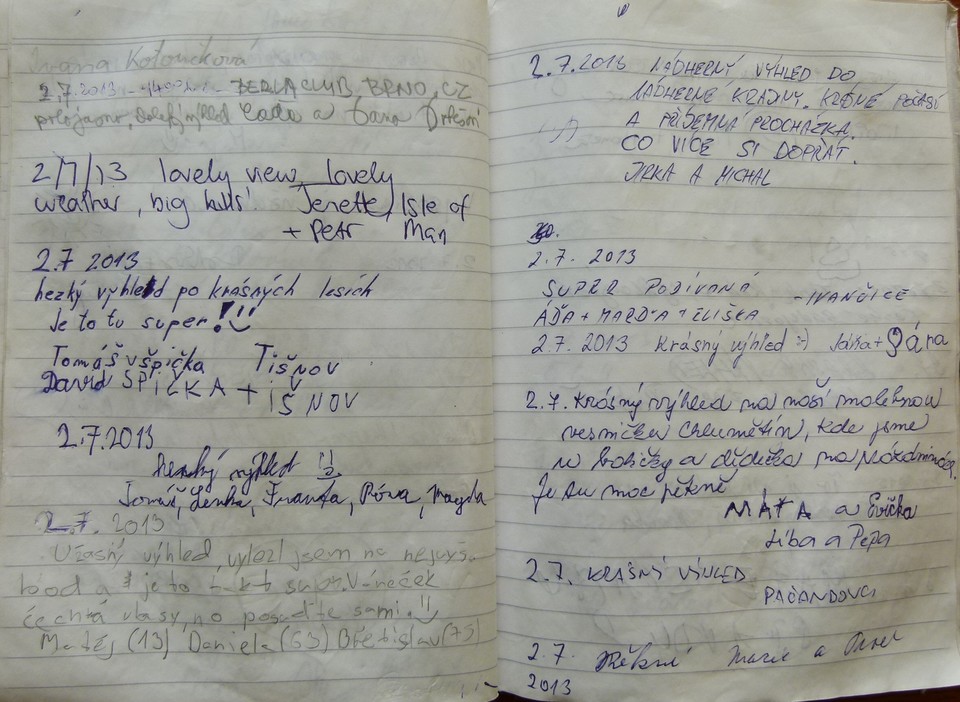 Ivana Kotoučková
2.7.2013 - ZERLA CLUB, BRNO, CZ
výhled a Dana
2/7/13 lovely view, lovely
weather, big hills! Jenette, Isle of
+ Petr Man
2.7 2013
hezký výhled po krásných lesích
Je to tu super!
Tomáš všpička Tišnov
David ŠPIČKA + iŠNOV
2.7.2013
hezký výhled !!
Tomáš, Lenka, Franta, Magda
2.7. 2013
Užasný výhled, vylezl jsem na nejvyš.
bod a je to t_k t super. Váneček
čechtá vlasy, no posaďte sami.!!
Matěj (13) Daniela (53) Břetislav (75)
2.7.2013 NÁDHERNÝ VÝHLED DO
NÁDHERNÉ KRAJINY. KRÁSNÉ POČASÍ
A PŘÍJEMNÁ PROCHÁZKA.
CO VÍCE SI DOPŘÁT.
JIRKA A MICHAL
2.7. 2013
SUPER PODÍVANÁ - IVANČICE
ÁĎA + MAREK + ELIŠKA
2.7. 2013 Krásný výhled :-) + Jára
2.7. Krásný výhled na naší malebnou
vesničku Chlumětín, kde jsme
u babičky a dědečka na prázdninách.
Je tu moc pěkně
MÁŤA a Evička
Liba a Pepa
2.7. KRÁSNÝ VÝHLED
PAČANDOVCI
2.7. Marie a Pavel
2013